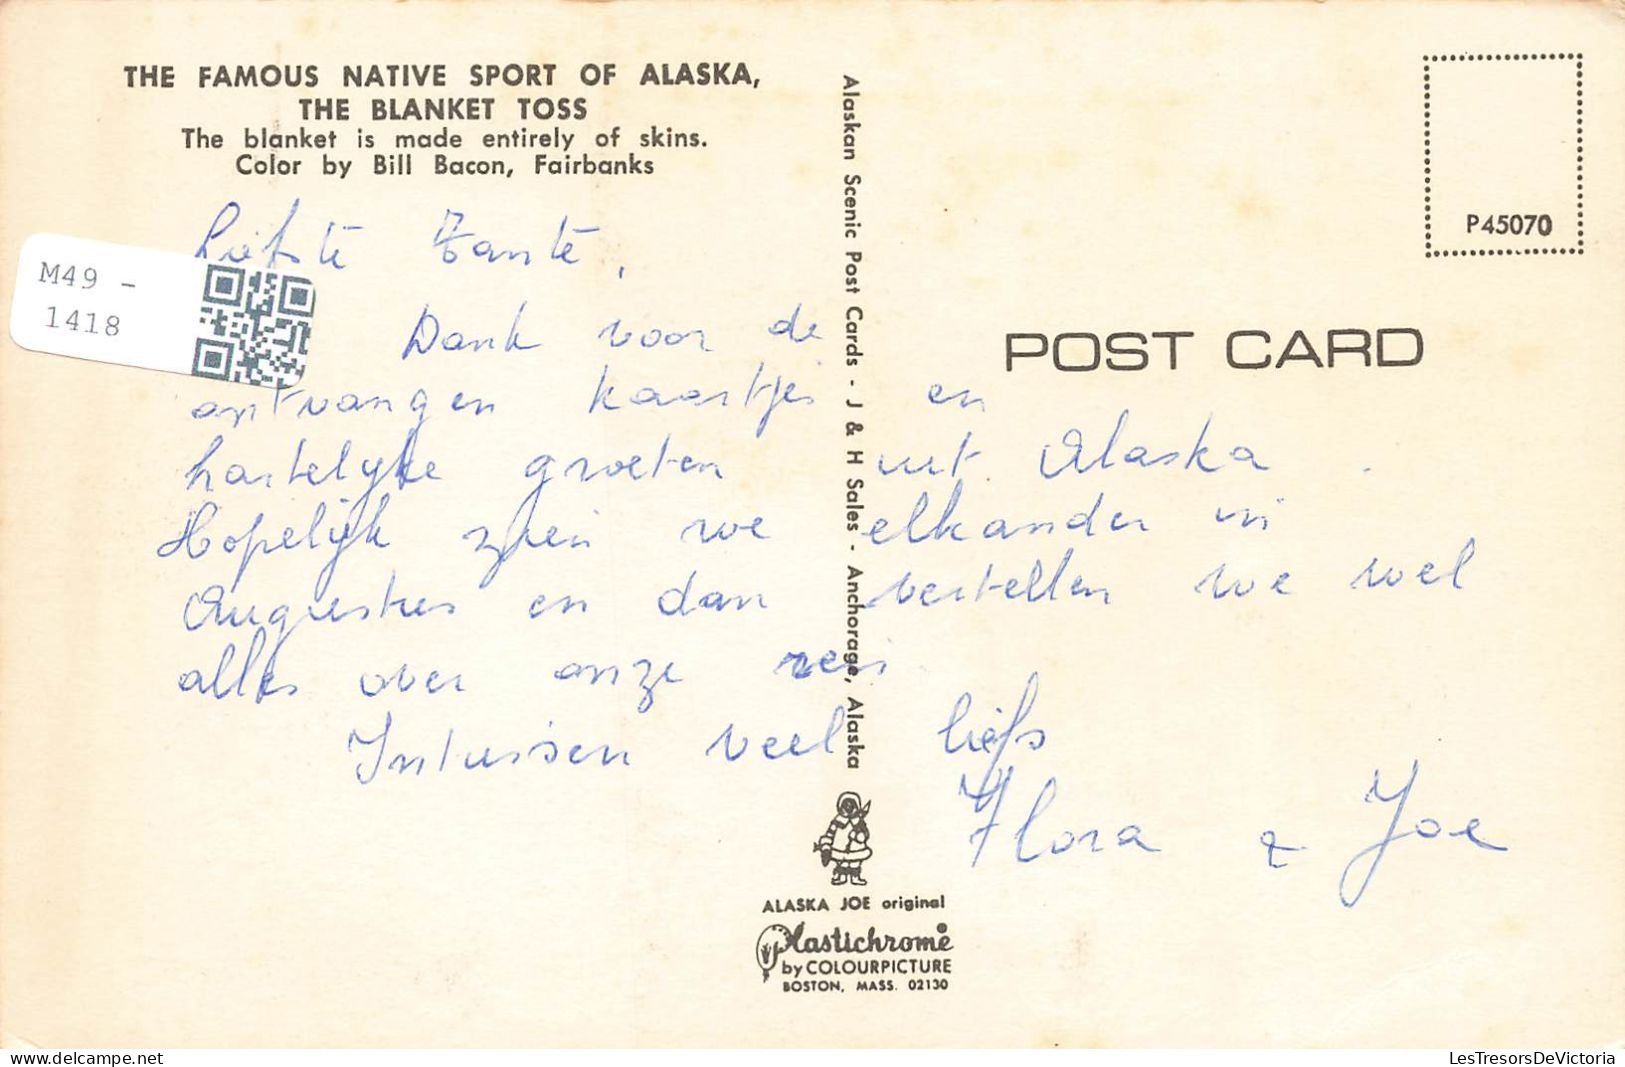 THE FAMOUS NATIVE SPORT OF ALASKA,
THE BLANKET TOSS
The blanket is made entirely of skins.
Color by Bill Bacon, Fairbanks
M49 -
1418
Liefste Tante,
Dank voor de
ontvangen kaartje en
hartelyke groeten uit Alaska.
Hopelijk zien we elkander in
Augustus en dan vertellen we wel
alles over onze reis
Intussen veel liefs
Flora & Joe
Alaskan Scenic Post Cards - J & H Sales - Anchorage, Alaska
P45070
POST CARD
ALASKA JOE original
Plastichrome
by COLOURPICTURE
BOSTON, MASS. 02130
delcampe.net
LesTresorsDeVictoria